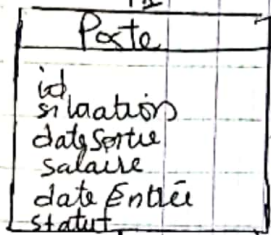 Poste
id
situation
dateSortie
salaire
date Entrée
statut